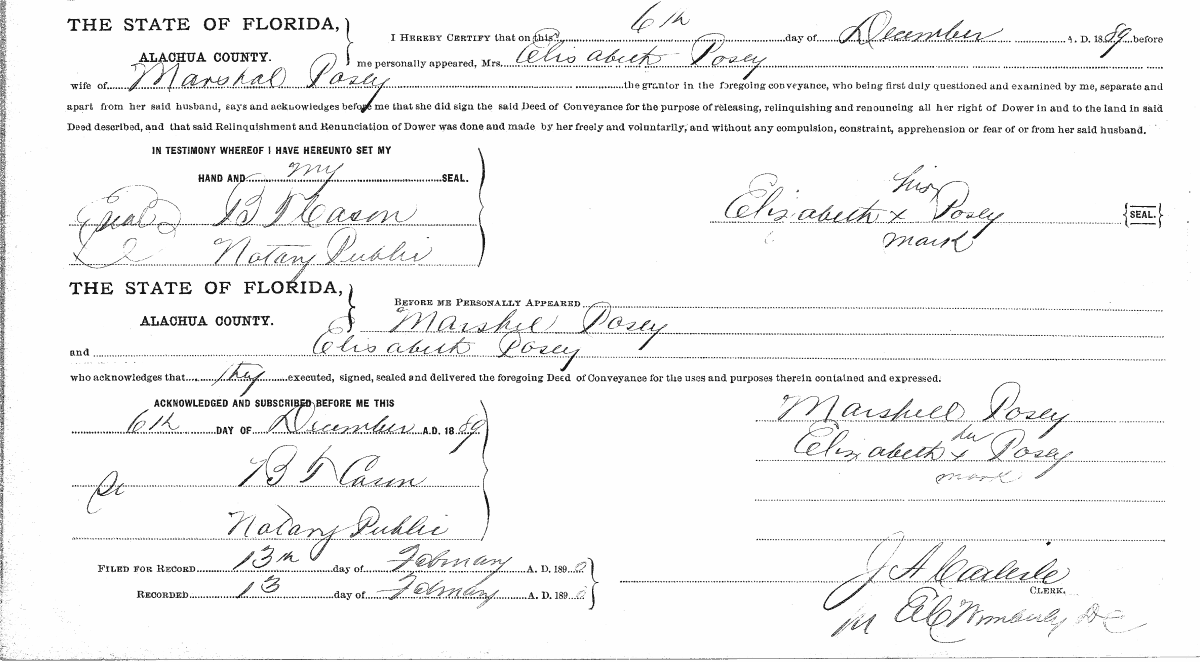 THE STATE OF FLORIDA,
ALACHUA COUNTY.
I HEREBY CERTIFY that on this 6th day of December A. D. 1889 before
me personally appeared, Mrs. Elisabeth Posey
wife of Marshal Posey the grantor in the foregoing conveyance, who being first duly questioned and examined by me, separate and
apart from her said husband, says and acknowledges before me that she did sign the said Deed of Conveyance for the purpose of releasing, relinquishing and renouncing all her right of Dower in and to the land in said
Deed described, and that said Relinquishment and Renunciation of Dower was done and made by her freely and voluntarily, and without any compulsion, constraint, apprehension or fear of or from her said husband.
IN TESTIMONY WHEREOF I HAVE HEREUNTO SET MY
HAND AND my SEAL.
B T Cason
Notary Public
his
Elisabeth x Posey {SEAL.}
mark
THE STATE OF FLORIDA,
ALACHUA COUNTY.
BEFORE ME PERSONALLY APPEARED
Marshel Posey
and Elisabeth Posey
who acknowledges that they executed, signed, sealed and delivered the foregoing Deed of Conveyance for the uses and purposes therein contained and expressed.
ACKNOWLEDGED AND SUBSCRIBED BEFORE ME THIS
6th DAY OF December A.D. 1889
B T Cason
Notary Public
Marshell Posey
her
Elizabeth x Posey
mark
FILED FOR RECORD 13th day of February A. D. 1890
RECORDED 13 day of February A. D. 1890
J A Carlisle
CLERK.
E C Wimberly DC